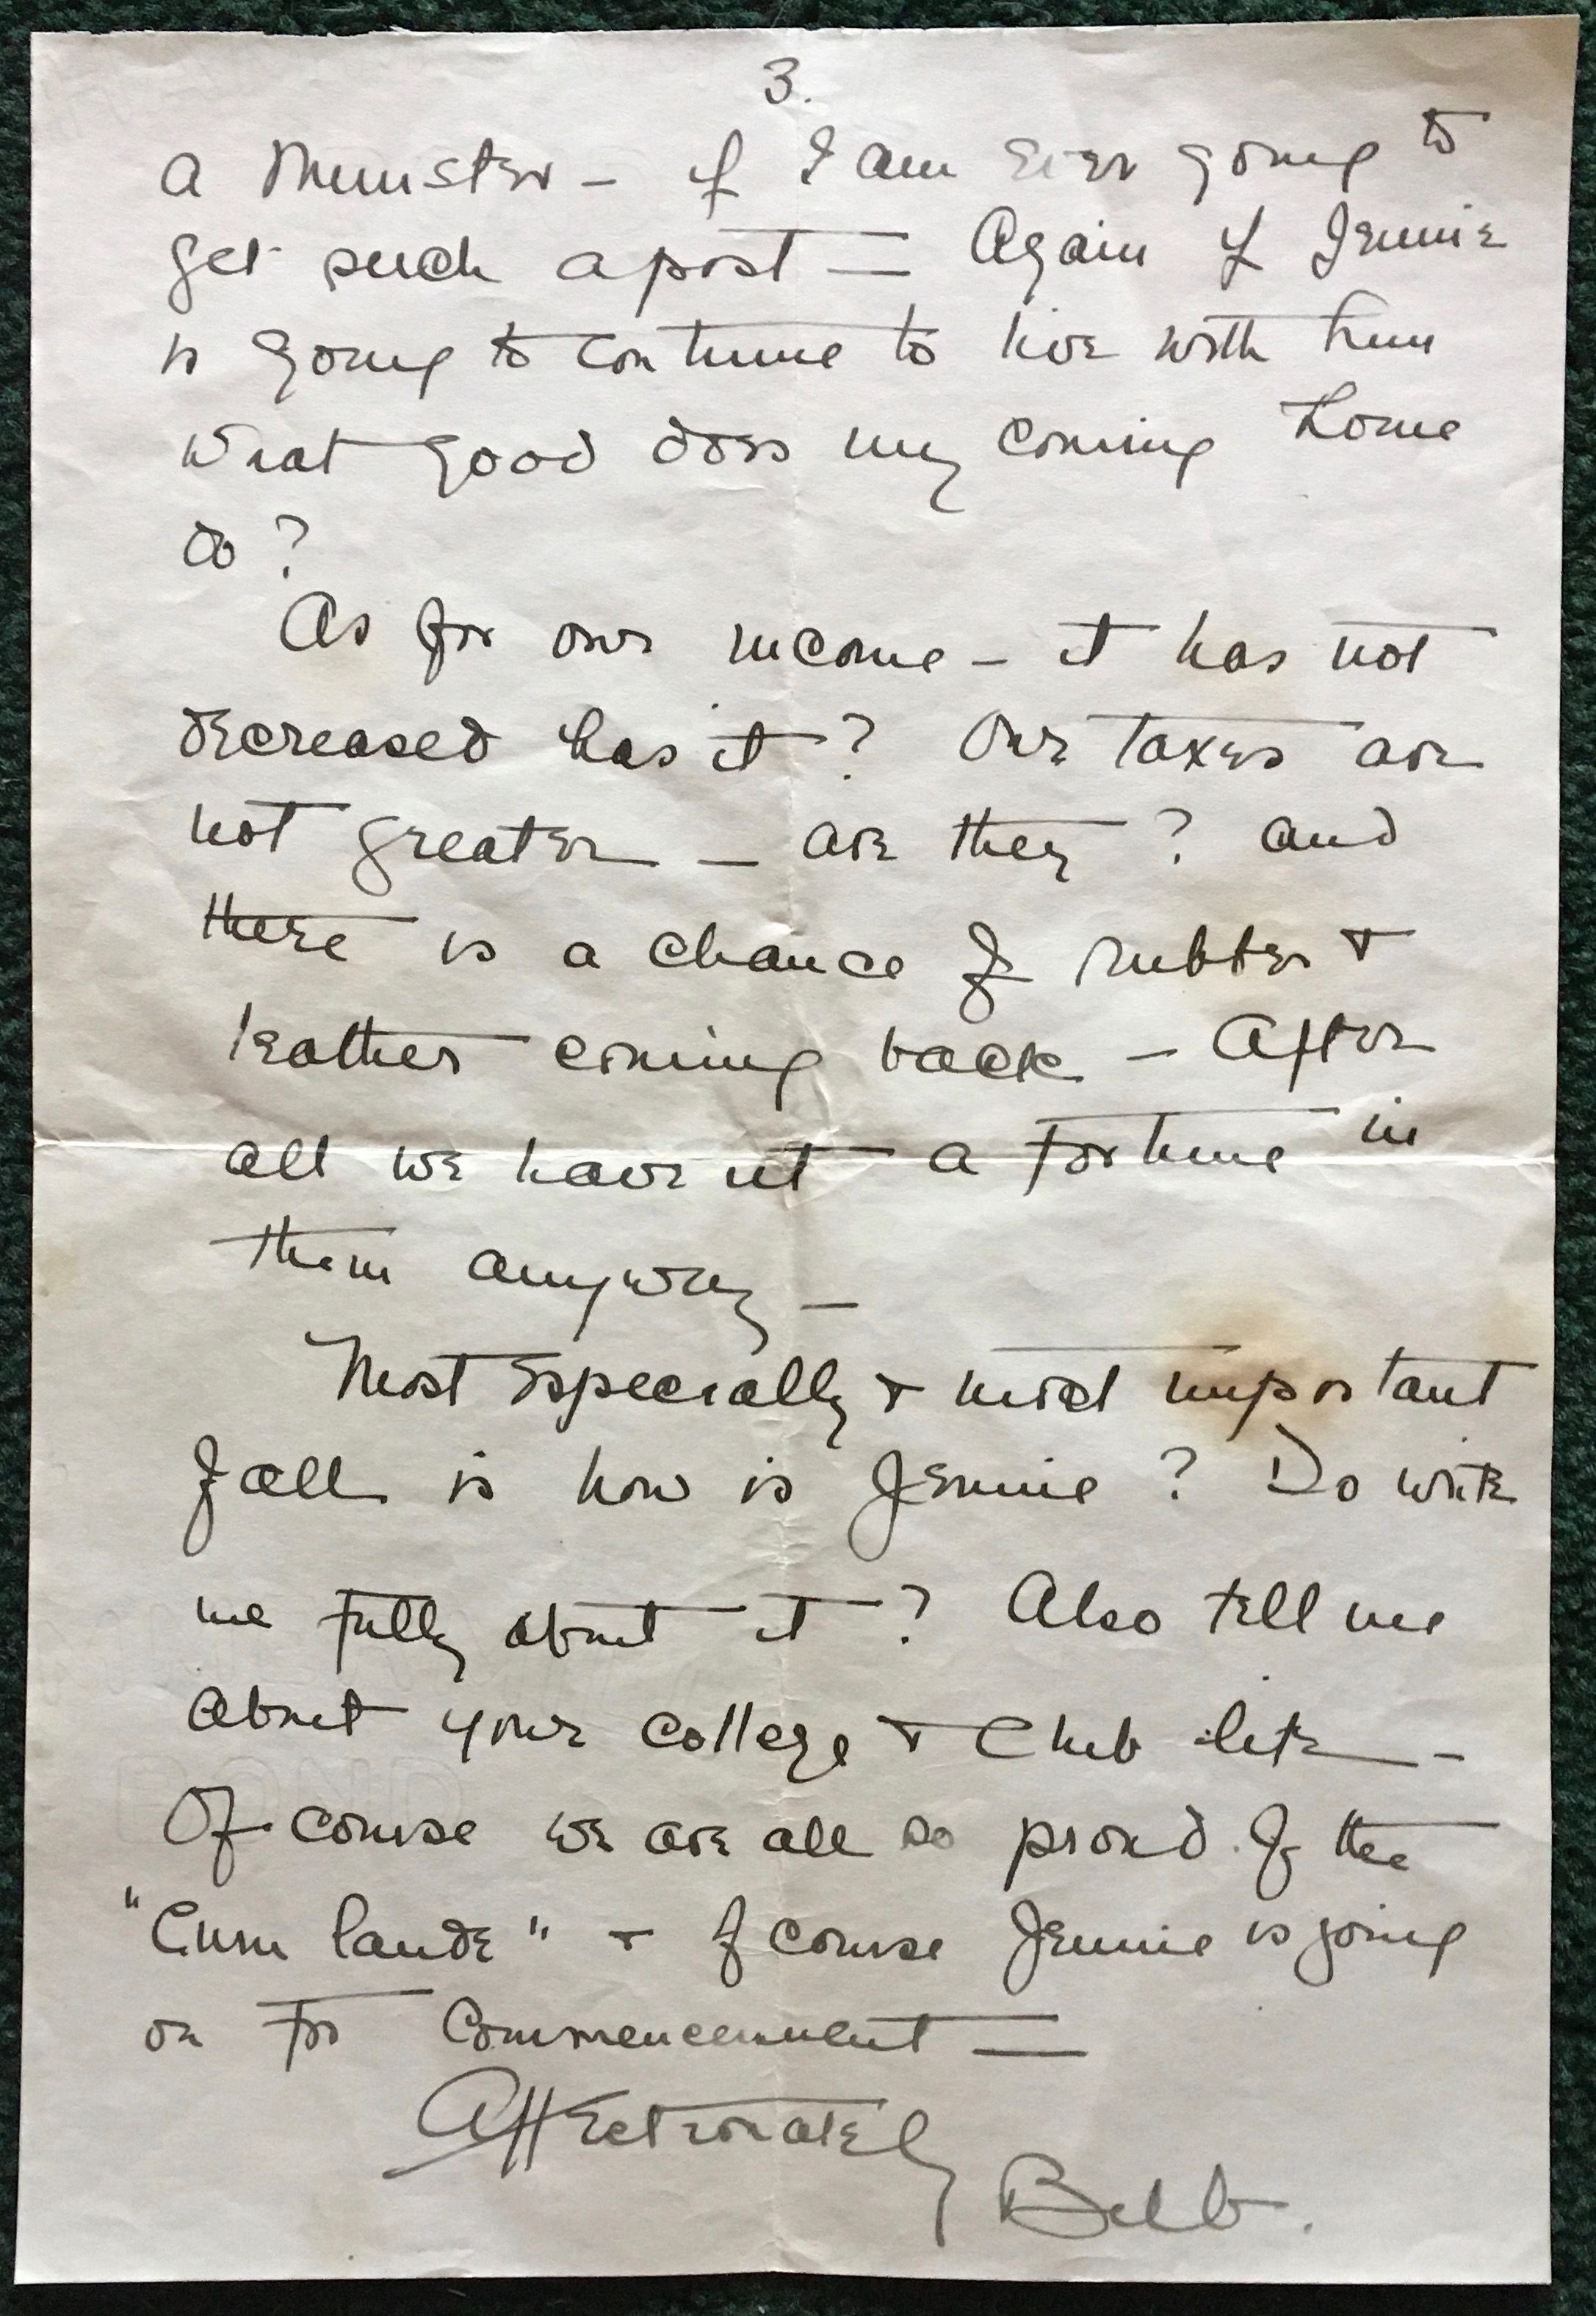 3.
a Minister – if I am ever going to
get such a post — Again if Jennie
is going to continue to live with him
what good does my coming home
do?
As for our income – it has not
decreased has it? Our taxes are
not greater – are they? and
there is a chance of rubber &
leather coming back – After
all we have n't a fortune in
them anyway –
Most especially & most important
of all is how is Jennie? Do write
me fully about it? Also tell me
about your college & Club life –
Of course we are all so proud of the
"Cum laude" & of course Jennie is going
on for Commencement —
Affectionately